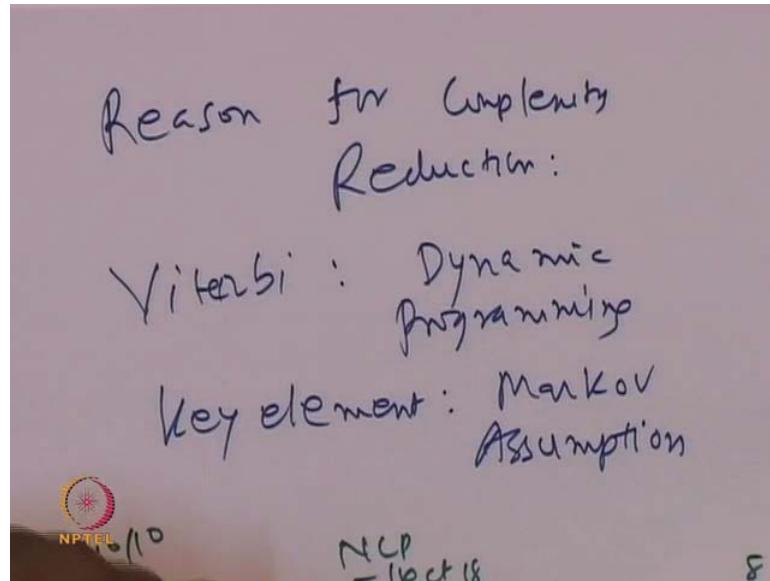 Reason for Complexity
Reduction:
Viterbi : Dynamic
Programming
Key element : Markov
Assumption
NPTEL
10/10
8